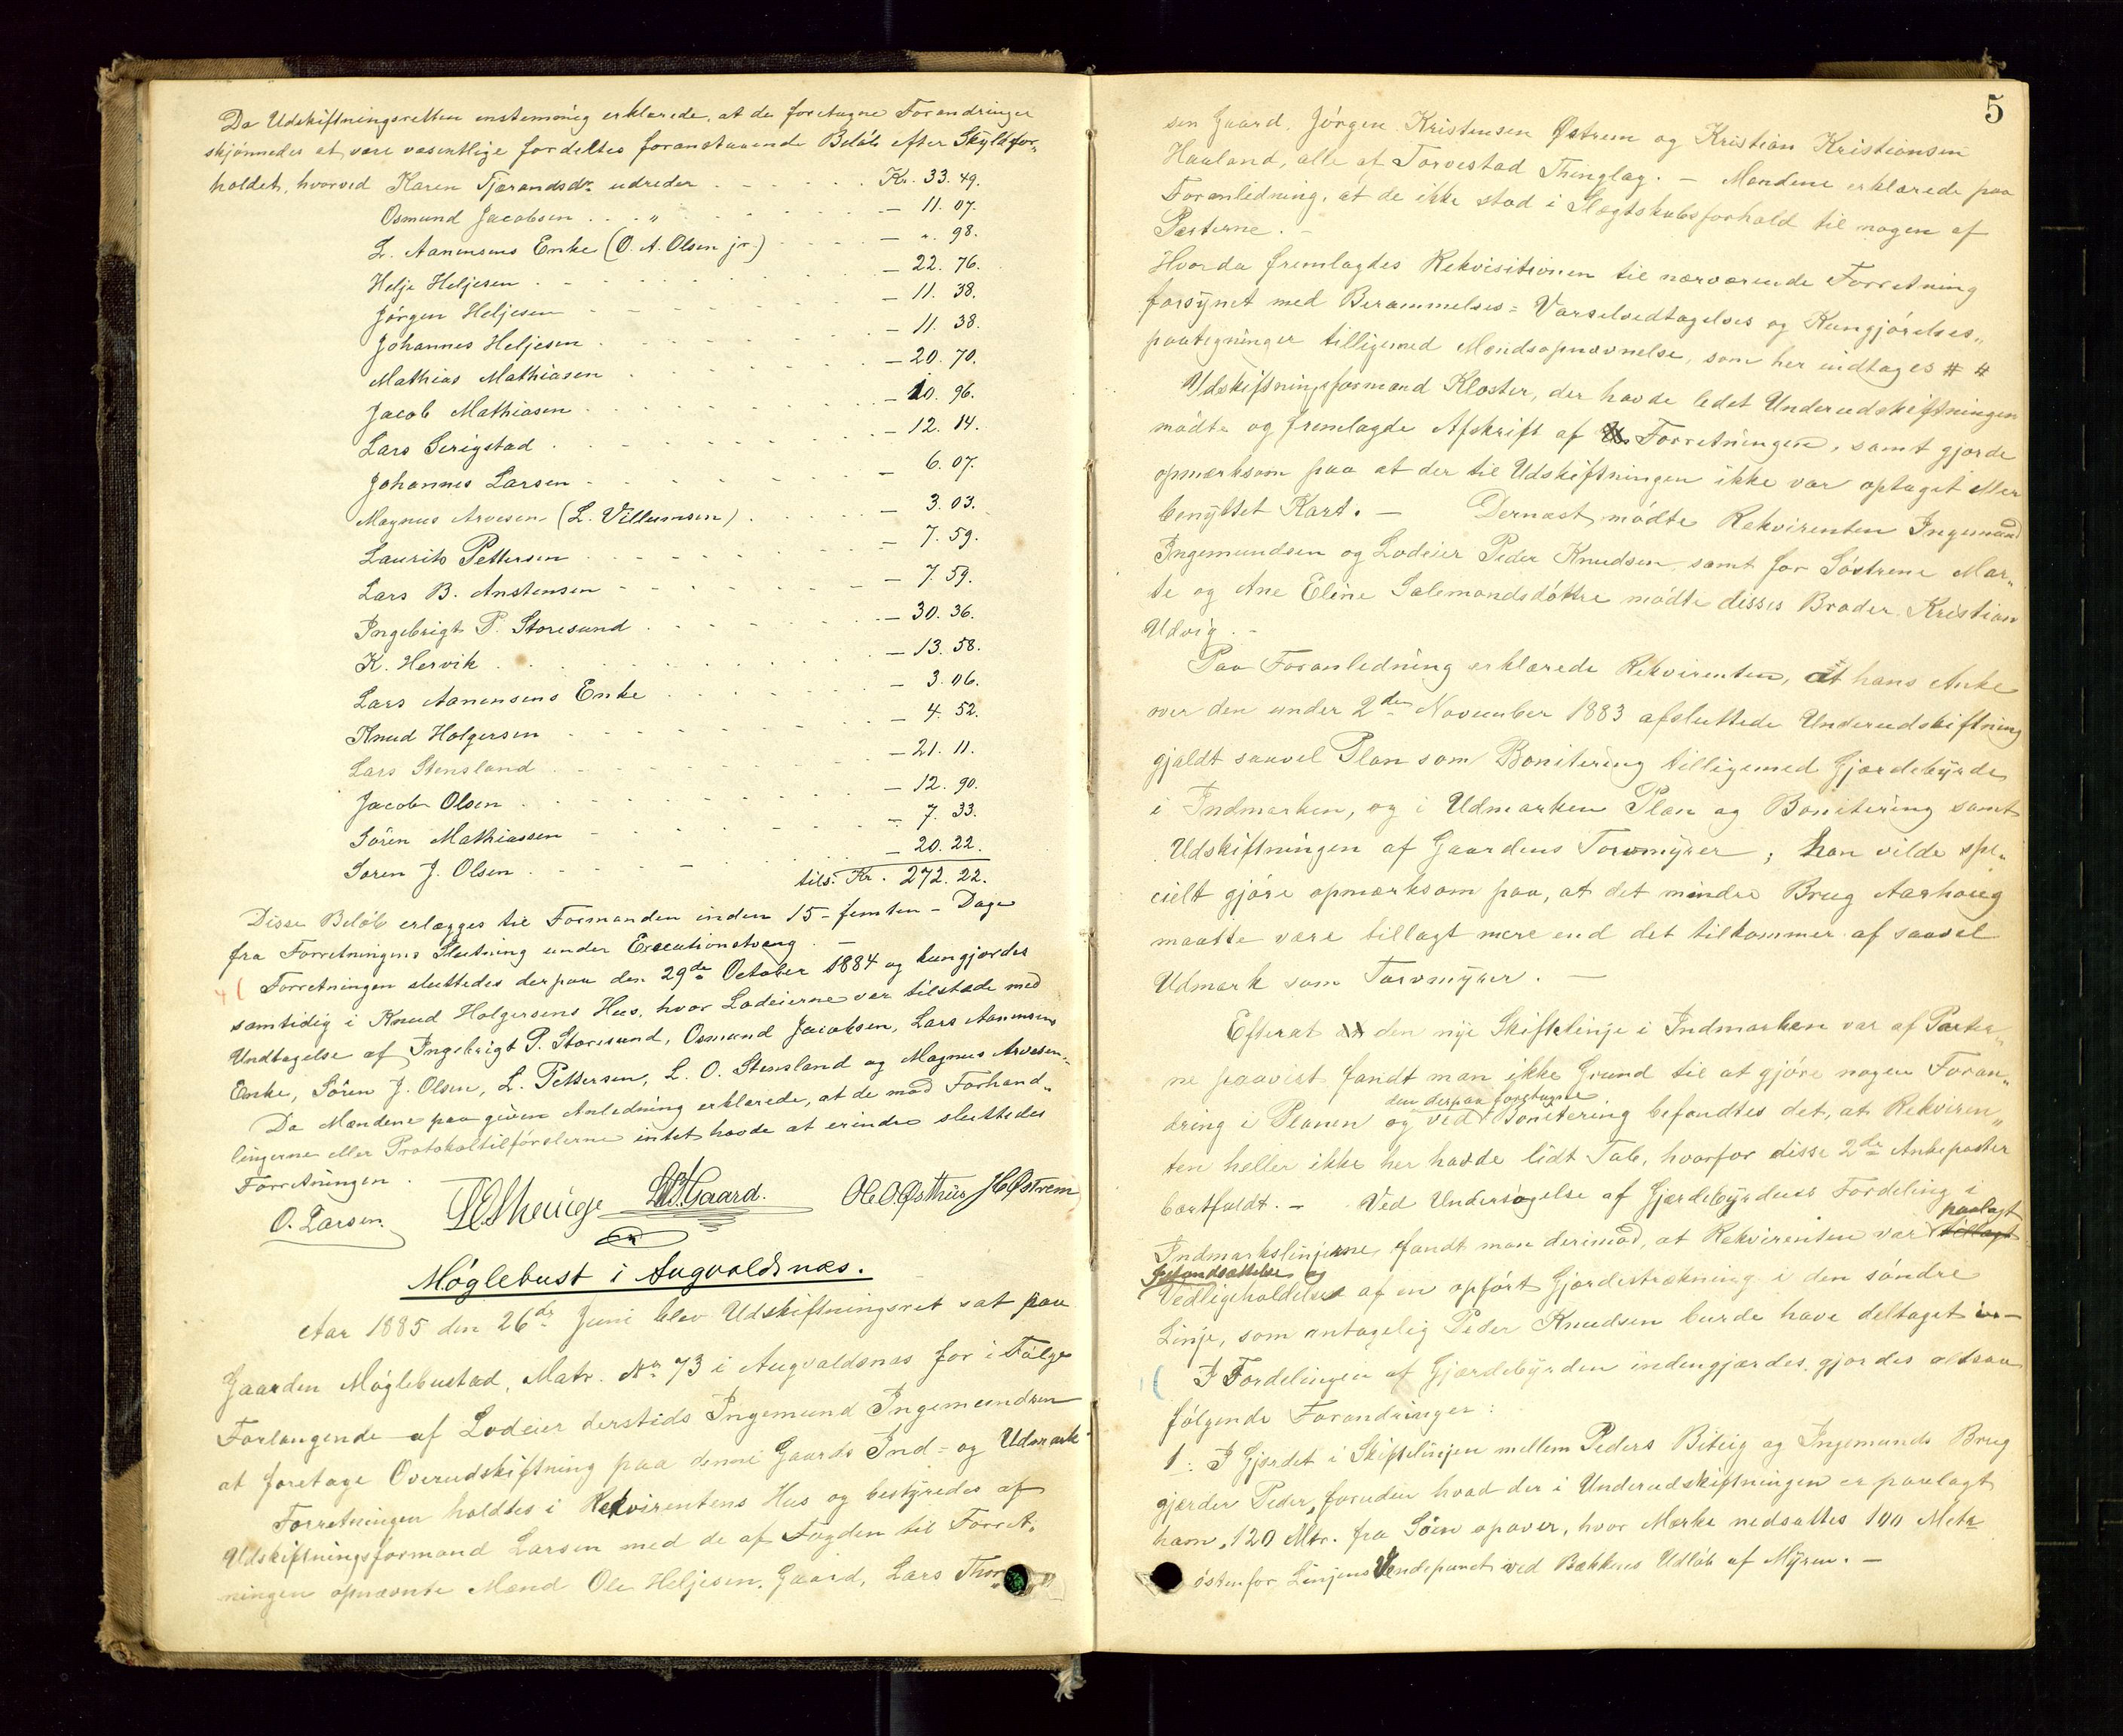 Da Udskiftningsretten enstemmig erklærede, at de foretagne Forandringer
skjønnedes at være væsentlige fordeltes foranstaaende Beløb efter Skyldfor-
holdet, hvorved Karen Tjærandsdr. udreder . . . . . Kr. 33. 49.
Osmund Jacobsen . . . „ . . . . . — 11. 07.
L. Aanensens Enke (O. A. Olsen jr.) . . . — „. 98.
Helje Heljesen . . . . . — 22. 76.
Jørgen Heljesen . . . . . — 11. 38.
Johannes Heljesen . . . . . — 11. 38.
Mathias Mathiasen . . . . . — 20. 70.
Jacob Mathiasen . . . . . — 10. 96.
Lars Serigstad . . . . . — 12. 14.
Johannes Larsen . . . . . — 6. 07.
Magnus Arvesen (L. Villumsen) . . . . — 3. 03.
Laurits Pettersen . . . . . — 7. 59.
Lars B. Anstensen . . . . . — 7. 59.
Ingebrigt P. Storesund . . . . . — 30. 36.
K. Hervik . . . . . — 13. 58.
Lars Aanensens Enke . . . . . — 3. 06.
Knud Holgersen . . . . . — 4. 52.
Lars Stensland . . . . . — 21. 11.
Jacob Olsen . . . . . — 12. 90.
Søren Mathiassen . . . . . — 7. 33.
Søren J. Olsen . . . . . — 20. 22.
tils. Kr. 272. 22.
Disse Beløb erlægges til Formanden inden 15 - femten - Dage
fra Forretningens Slutning under Executionstvang. —
Forretningen sluttedes derpaa den 29de October 1884 og kungjordes
samtidig i Knud Holgersens Hus, hvor Lodeierne var tilstede med
Undtagelse af Ingebrigt P. Storesund, Osmund Jacobsen, Lars Aanensens
Enke, Søren J. Olsen, L. Pettersen, L. O. Stensland og Magnus Arvesen.
Da Mændene paa given Anledning erklærede, at de mod Forhand-
lingerne eller Protokoltilførslerne intet havde at erindre sluttedes
Forretningen.
O. Larsen. L. H. Gaard. Ole O. Østhus J C Østrem
Møglebust i Augvaldsnæs.
Aar 1885 den 26de Juni blev Udskiftningsret sat paa
Gaarden Møglebustad, Matr. No 73 i Augvaldsnæs for i Følge
Forlangende af Lodeier dersteds Ingemund Ingemundsen
at foretage Overudskiftning paa denne Gaards Ind- og Udmark
Forretningen holdtes i Rekvirentens Hus og bestyredes af
Udskiftningsformand Larsen med de af Fogden til Forret-
ningen opnævnte Mænd Ole Heljesen Gaard, Lars Thor
5
sen Gaard, Jørgen Kristensen Østrem og Kristian Kristiansen
Haaland, alle af Torvestad Thinglag. — Mændene erklærede paa
Foranledning, at de ikke stod i Slægtskabsforhold til nogen af
Parterne. —
Hvorda fremlagdes Rekvisitionen til nærværende Forretning
forsynet med Berammelses- Varselvedtagelses og Kungjørelses-
paategninger tilligemed Mændsopnævnelse, som her indtages # #
Udskiftningsformand Kloster, der havde ledet Underudskiftningen
mødte og fremlagde Afskrift af Forretningen, samt gjorde
opmærksom paa at der til Udskiftningen ikke var optaget eller
benyttet Kart. — Dernæst mødte Rekvirenten Ingemund
Ingemundsen og Lodeier Peder Knudsen, samt for Søstrene Mar-
te og Ane Eline Salemondsdøttre mødte disses Broder Kristian
Udvig. —
Paa Foranledning erklærede Rekvirenten, at hans Anke
over den under 2den November 1883 afsluttede Underudskiftning
gjaldt saavel Plan som Bonitering tilligemed Gjærdebyrde
i Indmarken, og i Udmarken Plan og Bonitering samt
Udskiftningen af Gaardens Torvmyrer; han vilde spe-
cielt gjøre opmærksom paa, at det mindre Brug Aarhaug
maatte være tillagt mere end det tilkommer af saavel
Udmark som Torvmyrer. —
Efterat den nye Skiftelinje i Indmarken var af Parter-
ne paavist fandt man ikke Grund til at gjøre nogen Foran-
den derpaa foretagne
dring i Planen og ved Bonitering befandtes det, at Rekviren-
ten heller ikke her havde lidt Tab, hvorfor disse 2de Ankeposter
bortfaldt. — Ved Undersøgelse af Gjærdebyrdens Fordeling i
paalagt
Indmarkslinjerne fandt man derimod, at Rekvirenten var tillagt
Istandsættelse og
Vedligeholdelse af en opført Gjærdestrækning i den søndre
Linje, som antagelig Peder Knudsen burde have deltaget i. —
I Fordelingen af Gjærdebyrden indengjærdes gjordes altsaa
følgende Forandringer:
1. I Gjærdet i Skiftelinjen mellem Peders Biteig og Ingemunds Brug
gjærder Peder, foruden hvad der i Underudskiftningen er paalagt
ham, 120 Mtr. fra Søen opover, hvor Mærke nedsattes 100 Metr
østenfor Linjens Vendepunct ved Bækkens Udløb af Myren. —